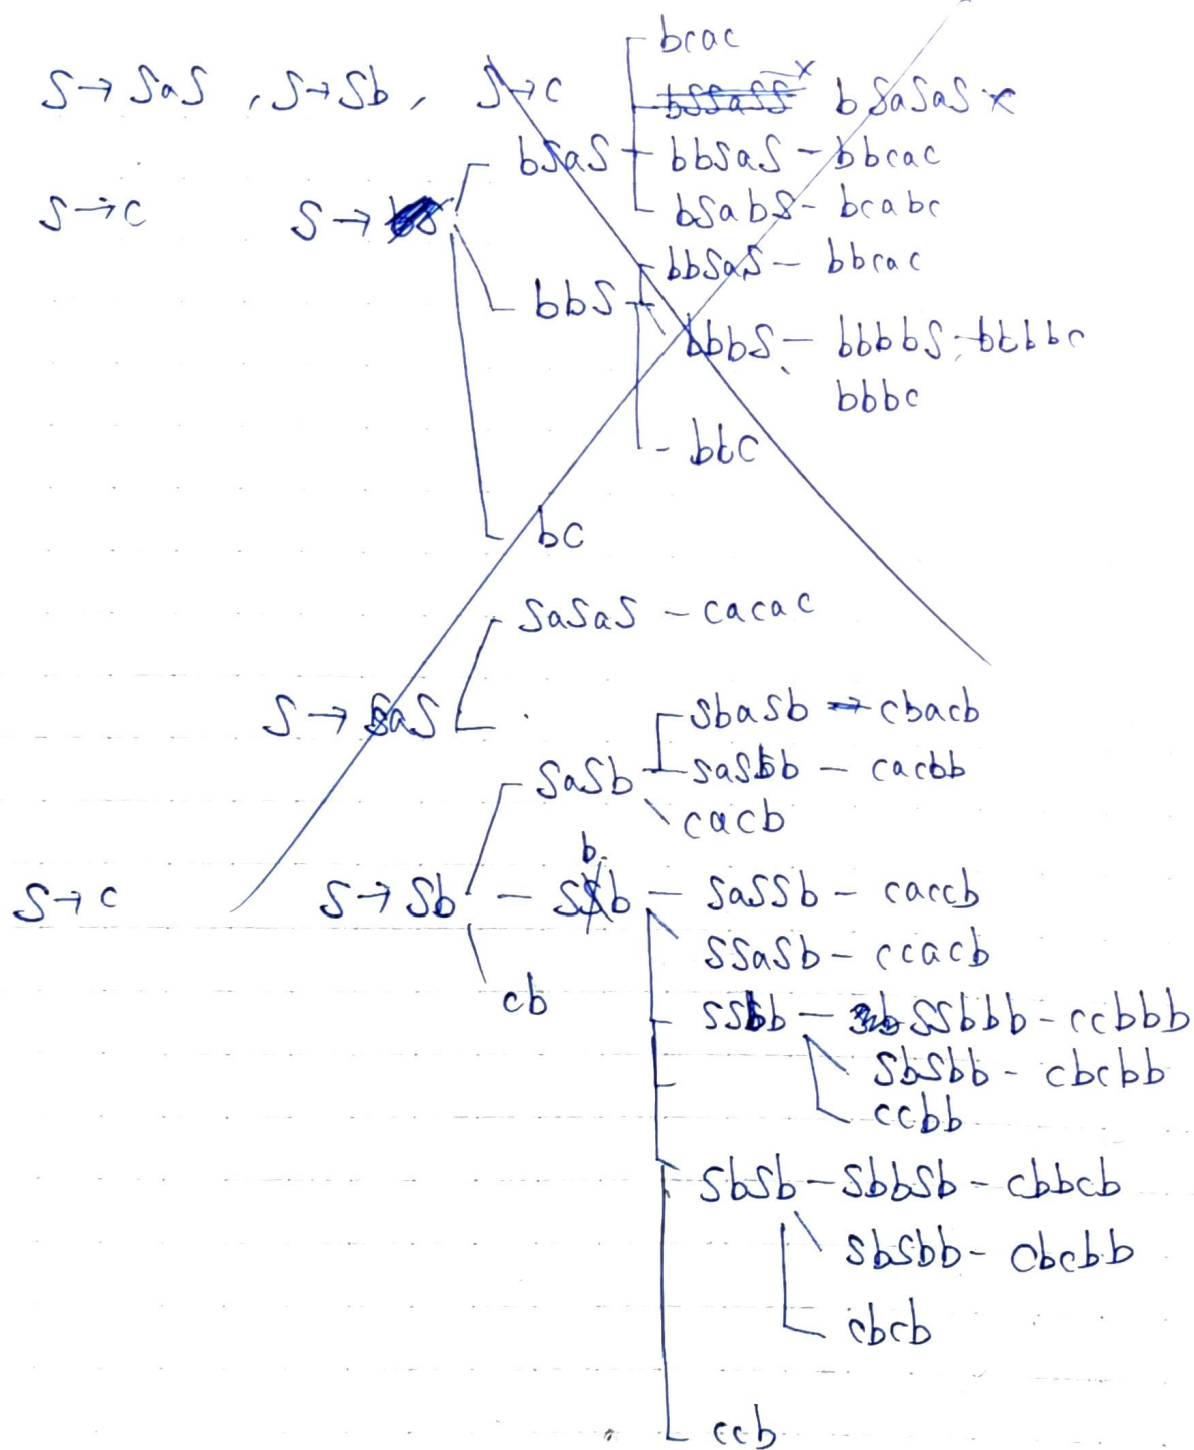 S→SaS , S→Sb , S→c
bcac
bSSaSS x bSaSaS x
bSaS bbSaS - bbcac
S→c S→bS bSabS - bcabc
bbSaS - bbcac
bbS bbbS - bbbbS - bbbbc
bbbc
- bbc
bc
SaSaS - cacac
S→SaS SbaSb → cbacb
SaSb SaSbb - cacbb
cacb
b
S→c S→Sb - SSb - SaSSb - caccb
SSaSb - ccacb
cb SSbb - SSbbb - ccbbb
SbSbb - cbcbb
ccbb
SbSb - SbbSb - cbbcb
SbSbb - cbcbb
cbcb
ccb